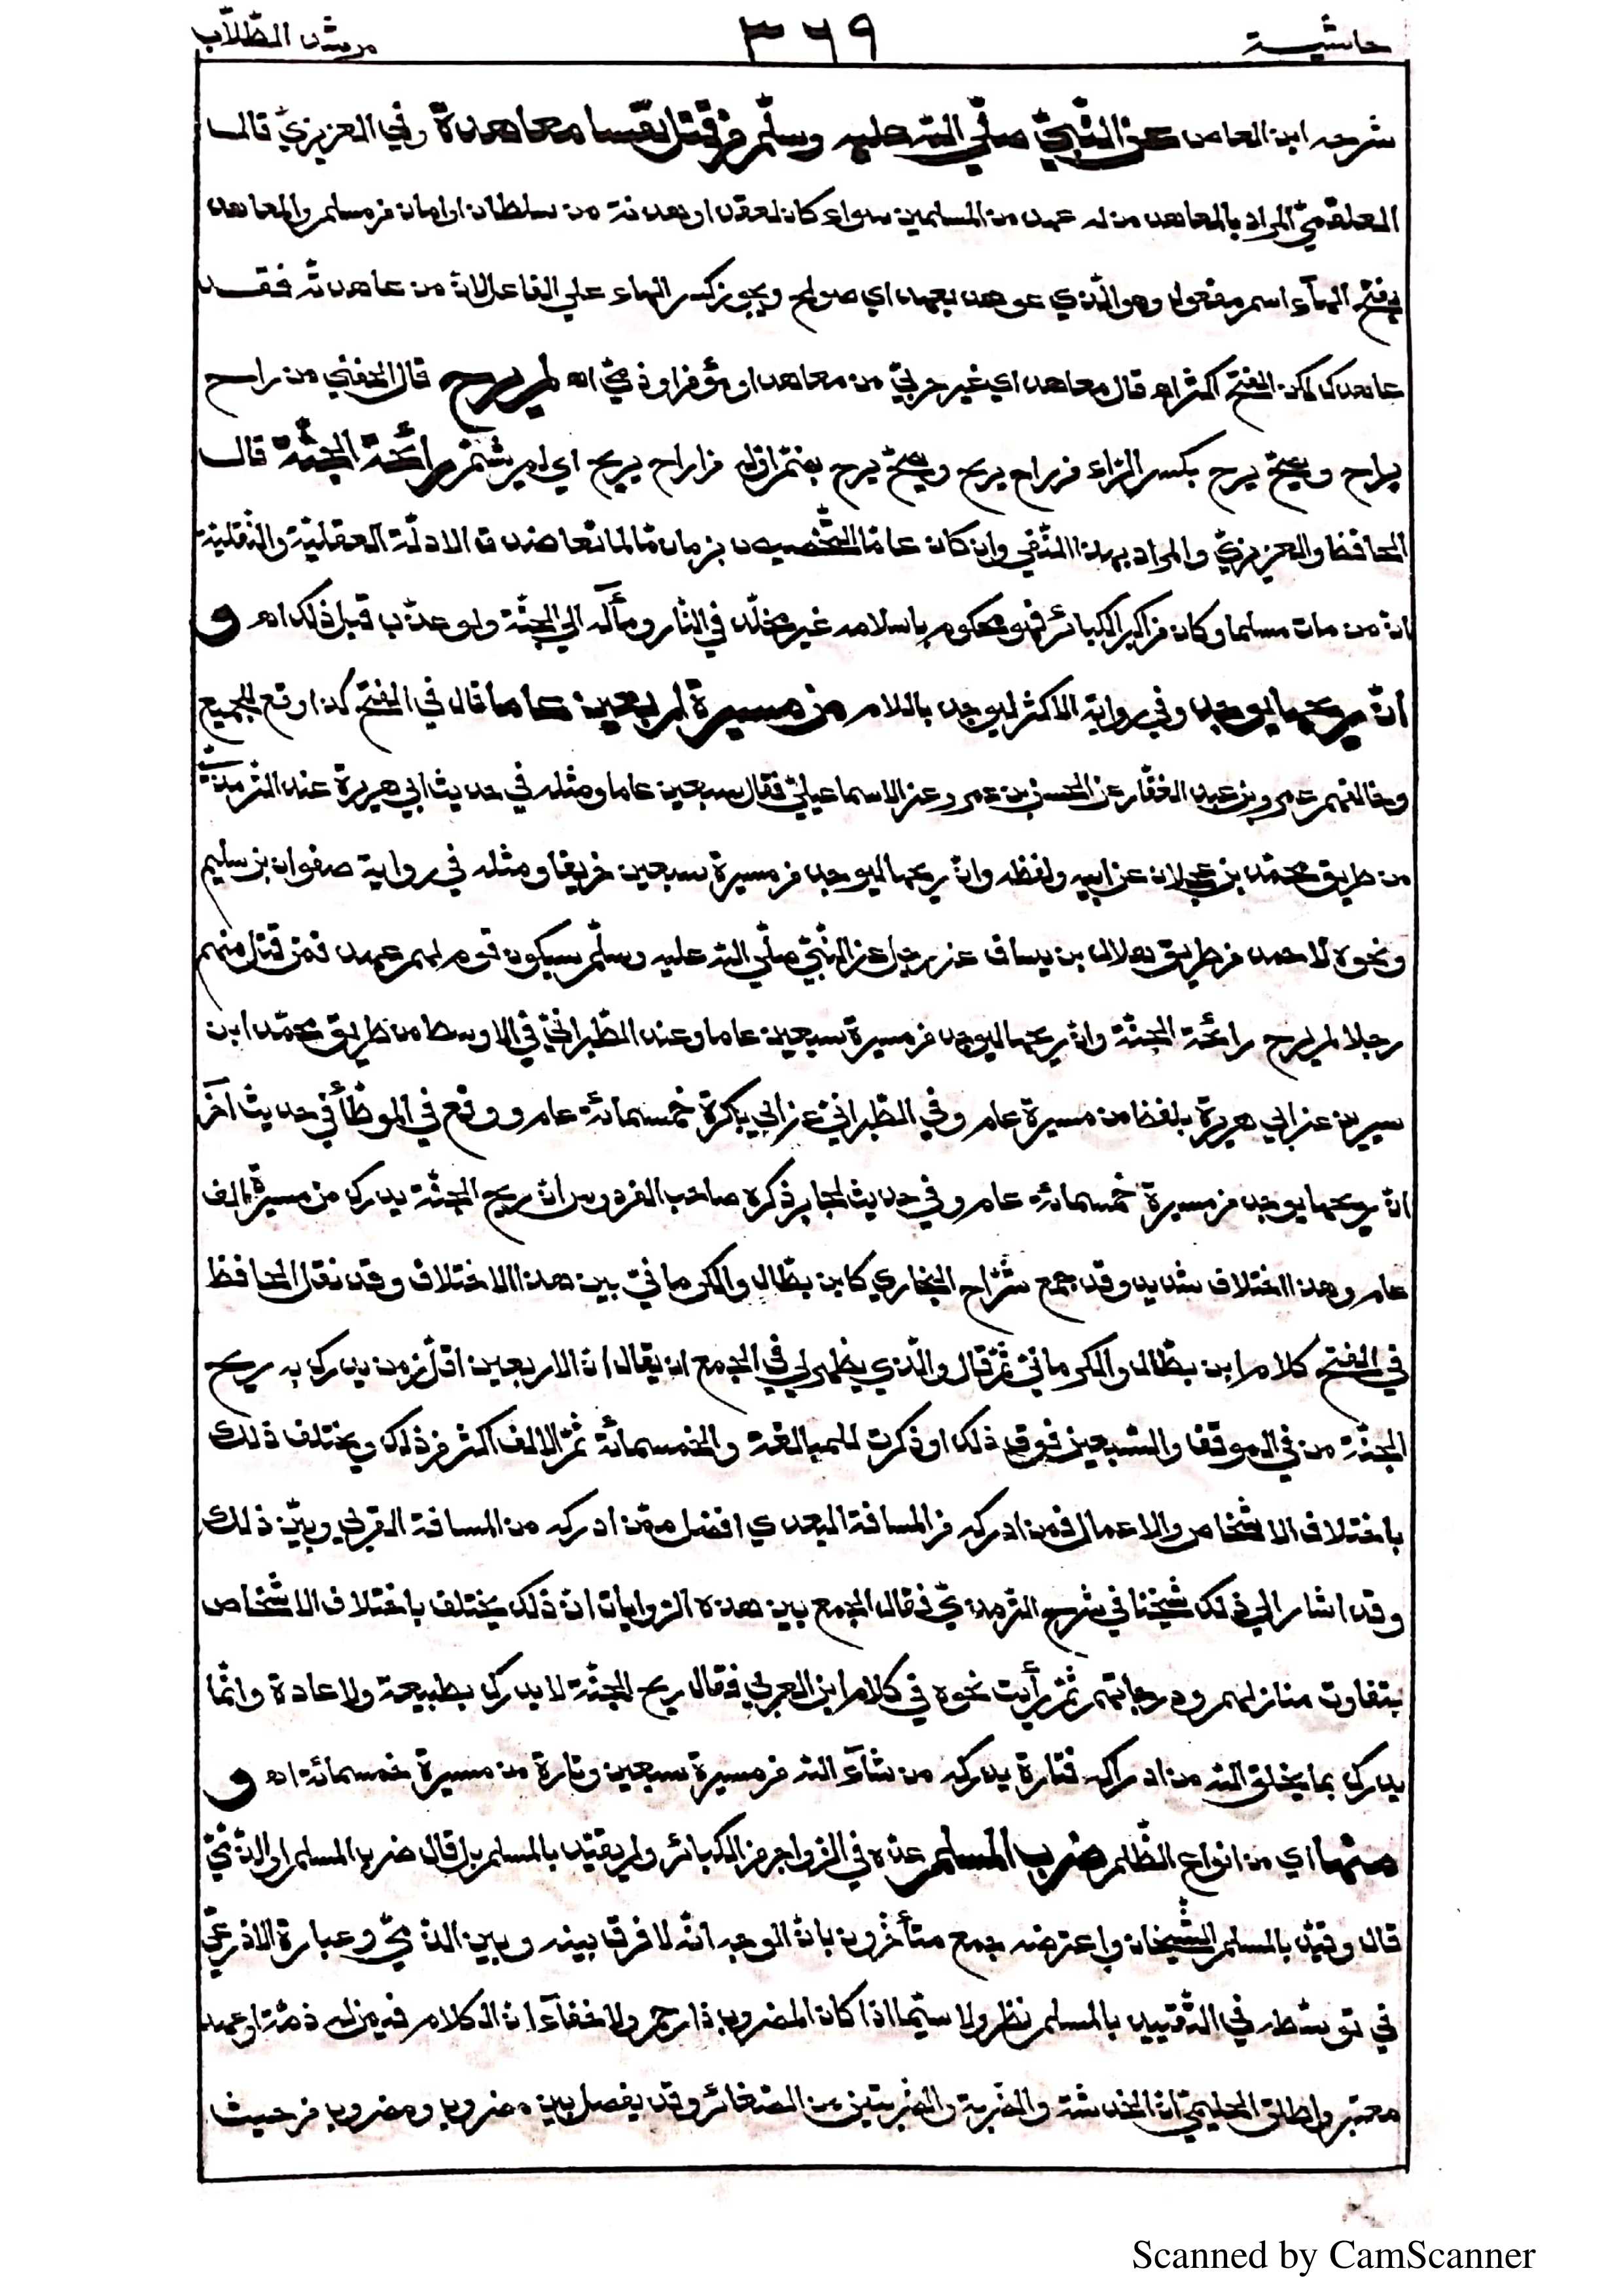 حاشية ٣٦٩ مرشد الطّلّاب
شرحه ابن العاص عن النّبيّ صلّي اللّه عليه وسلّم من قتل نفسا معاهدة وفي العزيزيّ قال
العلقميّ المراد بالمعاهد من له عهد من المسلمين سواء كان لعقد او بهدنة من سلطان او امان من مسلم والمعاهد
بفتح الهآء اسم مفعول وهو الّذي عوهد بعهد اي صولح ويجوز كسر الهاء علي الفاعل لانّ من عاهدتّه فقد
عاهدك لكن الفتح اكثر اه قال معاهد اي غير حربيّ من معاهد او مؤمن او ذميّ اه لم يرح قال الحفني من راح
يراح ويصحّ يرح بكسر الرّاء من راح يريح ويصحّ يرح بضمّ اوّله من اراح يريح اي لم يشتمّ رائحة الجنّة قال
الحافظ والعزيزيّ والمراد بهذا النّفي وان كان عامّا التّخصيص بزمان مّا لما تعاضدت الادلّة العقليّة والنّقليّة
انّ من مات مسلما وكان من اكبر الكبائر فهو محكوم باسلامه غير مخلّد في النّار ومآله الي الجنّة ولو عذّب قبل ذلك اه و
انّ ريحها ليوجد وفي رواية الاكثر ليوجد باللام من مسيرة اربعين عاما قال في الفتح كذا وقع للجميع
وخالفهم عمرو بن عبد الغفّار عن الحسن بن عمرو عن الاسماعيليّ فقال سبعين عاما ومثله في حديث ابي هريرة عند التّرمذيّ
من طريق محمّد بن عجلان عن ابيه ولفظه وانّ ريحها ليوجد من مسيرة سبعين خريفا ومثله في رواية صفوان بن سليم
ونحوه لاحمد من طريق هلال بن يساف عن رجل عن النّبيّ صلّي اللّه عليه وسلّم سيكون قوم لهم عهد فمن قتل منهم
رجلا لم يرح رائحة الجنّة وانّ ريحها ليوجد من مسيرة سبعين عاما وعند الطّبرانيّ في الاوسط من طريق محمّد ابن
سيرين عن ابي هريرة بلفظ من مسيرة عام وفي الطّبرانيّ عن ابي بكرة خمسمائة عام ووقع في الموطّأ في حديث آخر
انّ ريحها يوجد من مسيرة خمسمائة عام وفي حديث لجابر ذكره صاحب الفردوس انّ ريح الجنّة يدرك من مسيرة الف
عام وهذا اختلاف شديد وقد جمع شرّاح البخاري كابن بطّال والكرمانيّ بين هذا الاختلاف وقد نقل الحافظ
في الفتح كلام ابن بطّال والكرمانيّ ثمّ قال والّذي يظهر لي في الجمع ان يقال انّ الاربعين اقلّ زمن يدرك به ريح
الجنّة من في الموقف والسّبعين فوق ذلك او ذكرت للمبالغة والخمسمائة ثمّ الالف اكثر من ذلك ويختلف ذلك
باختلاف الاشخاص والاعمال فمن ادركه من المسافة البعدي افضل ممّن ادركه من المسافة القربي وبيّن ذلك
وقد اشار الي ذلك شيخنا في شرح التّرمذيّ فقال الجمع بين هذه الرّوايات انّ ذلك يختلف باختلاف الاشخاص
بتفاوت منازلهم ودرجاتهم ثمّ رأيت نحوه في كلام ابن العربي فقال ريح الجنّة لا يدرك بطبيعة ولا عادة وانّما
يدرك بما يخلق اللّه من ادراكه فتارة يدركه من شآء اللّه من مسيرة سبعين وتارة من مسيرة خمسمائة اه و
منها اي من انواع الظّلم ضرب المسلم عدّه في الزّواجر من الكبائر ولم يقيّد بالمسلم بل قال ضرب المسلم او الذّمّيّ
قال وقيّد بالمسلم الشّيخان واعترضه جمع متأخّرون بانّ الوجه انّه لا فرق بينه وبين الذّميّ وعبارة الاذرعيّ
في توسّطه في التّقييد بالمسلم نظر ولا سيّما اذا كان المضروب ذا رحم ولا خفآء انّ الكلام فيمن له ذمّة او عهد
معتبر واطلق الحليميّ انّ الخدشة والضّربة والضّربتين من الصّغائر وقد يفصل بين مضروب ومضروب من حيث
Scanned by CamScanner